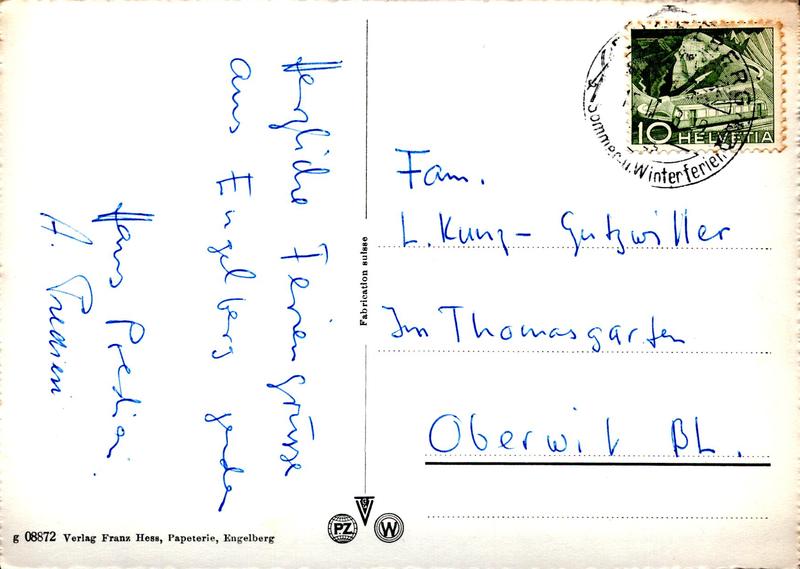 Herzliche Feriengrüsse
aus Engelberg senden
Hans
A.
Fabrication suisse
10 HELVETIA
Sommer- u. Winterferien
Fam.
L. Kunz- Gutzwiller
Im Thomasgarten
Oberwil BL.
PZ
W
g 08872 Verlag Franz Hess, Papeterie, Engelberg